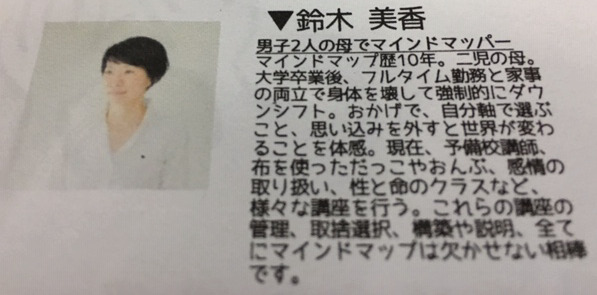 ▼鈴木 美香
男子2人の母でマインドマッパー
マインドマップ歴10年。二児の母。
大学卒業後、フルタイム勤務と家事
の両立で身体を壊して強制的にダウ
ンシフト。おかげで、自分軸で選ぶ
こと、思い込みを外すと世界が変わ
ることを体感。現在、予備校講師、
布を使っただっこやおんぶ、感情の
取り扱い、性と命のクラスなど、
様々な講座を行う。これらの講座の
管理、取捨選択、構築や説明、全て
にマインドマップは欠かせない相棒
です。